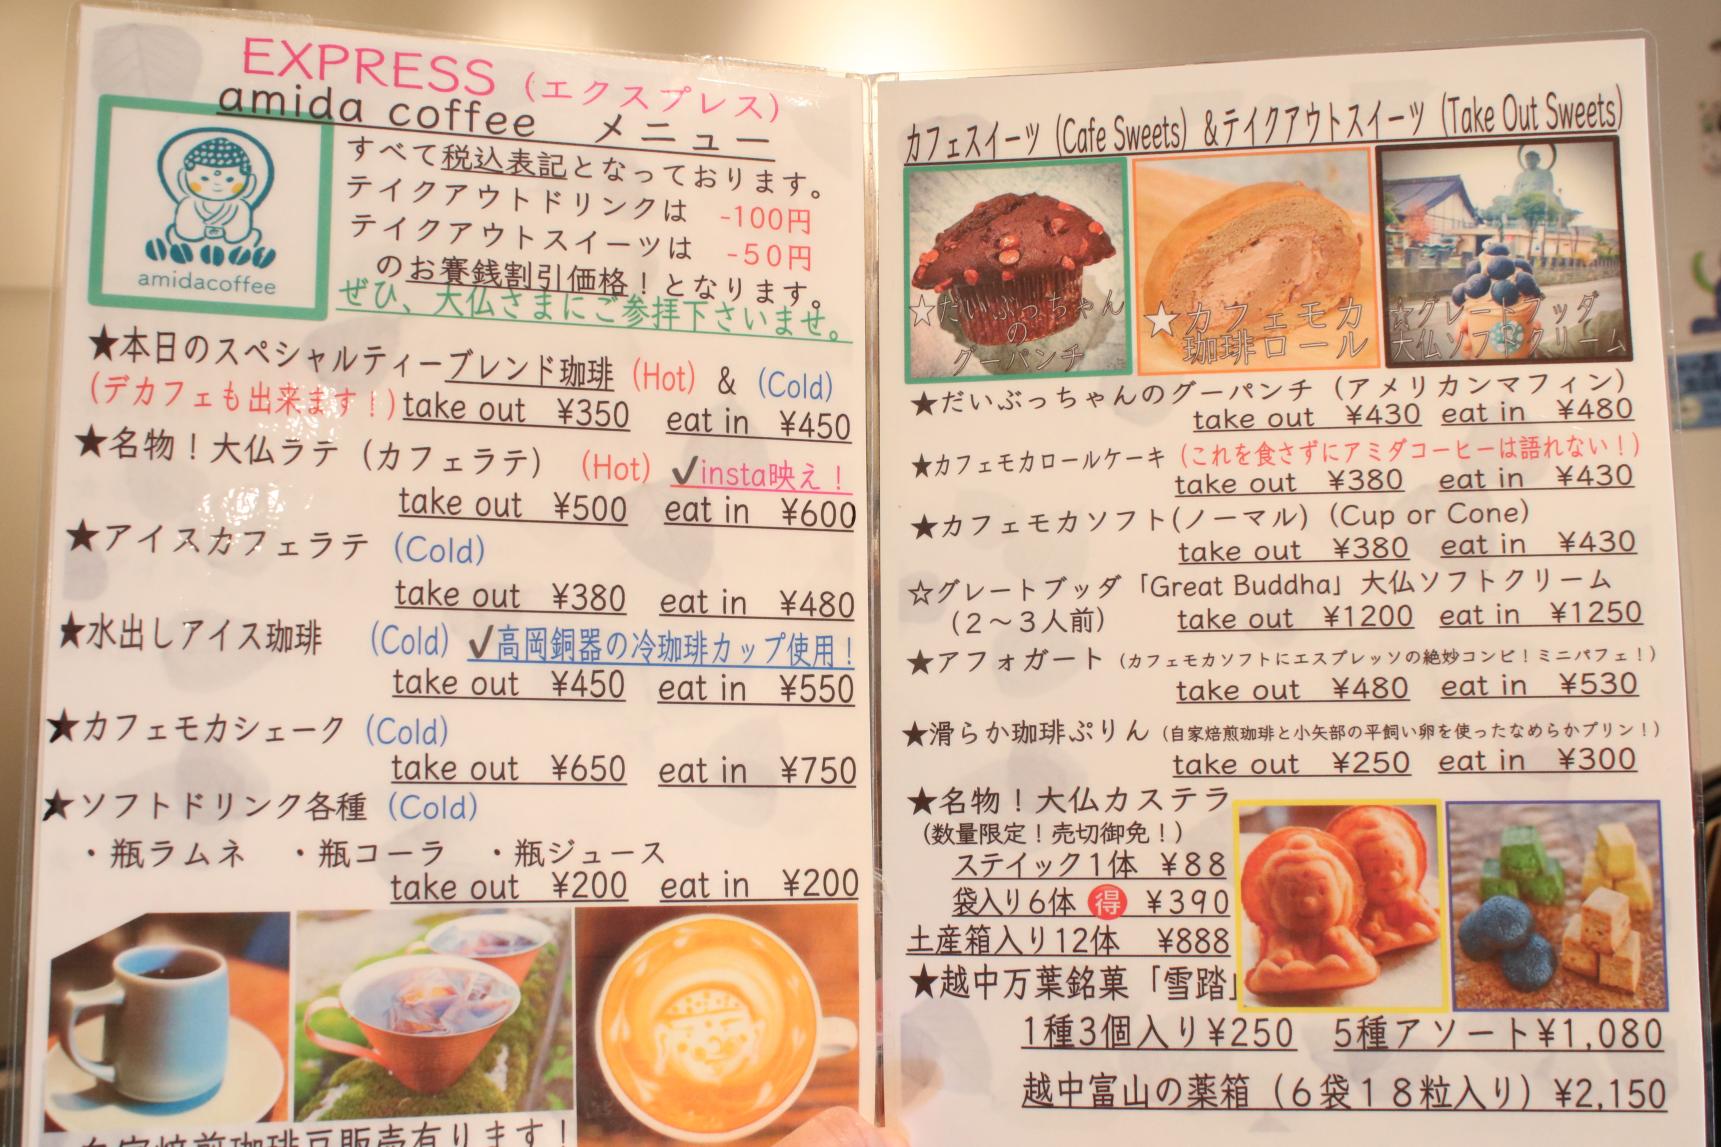 EXPRESS (エクスプレス)
amida coffee メニュー
amidacoffee
すべて税込表記となっております。
テイクアウトドリンクは -100円
テイクアウトスイーツは -50円
のお賽銭割引価格！となります。
ぜひ、大仏さまにご参拝下さいませ。
★本日のスペシャルティーブレンド珈琲 (Hot) & (Cold)
(デカフェも出来ます！) take out ¥350 eat in ¥450
★名物！大仏ラテ (カフェラテ) (Hot) ✓insta映え！
take out ¥500 eat in ¥600
★アイスカフェラテ (Cold)
take out ¥380 eat in ¥480
★水出しアイス珈琲 (Cold) ✓高岡銅器の冷珈琲カップ使用！
take out ¥450 eat in ¥550
★カフェモカシェーク (Cold)
take out ¥650 eat in ¥750
★ソフトドリンク各種 (Cold)
・瓶ラムネ ・瓶コーラ ・瓶ジュース
take out ¥200 eat in ¥200
自家焙煎珈琲豆販売有ります！
カフェスイーツ (Cafe Sweets) &テイクアウトスイーツ (Take Out Sweets)
☆だいぶっちゃん
の
グーパンチ
★カフェモカ
珈琲ロール
☆グレートブッダ
大仏ソフトクリーム
★だいぶっちゃんのグーパンチ (アメリカンマフィン)
take out ¥430 eat in ¥480
★カフェモカロールケーキ (これを食さずにアミダコーヒーは語れない！)
take out ¥380 eat in ¥430
★カフェモカソフト(ノーマル) (Cup or Cone)
take out ¥380 eat in ¥430
☆グレートブッダ「Great Buddha」大仏ソフトクリーム
(２～３人前) take out ¥1200 eat in ¥1250
★アフォガート (カフェモカソフトにエスプレッソの絶妙コンビ！ミニパフェ！)
take out ¥480 eat in ¥530
★滑らか珈琲ぷりん (自家焙煎珈琲と小矢部の平飼い卵を使ったなめらかプリン！)
take out ¥250 eat in ¥300
★名物！大仏カステラ
(数量限定！売切御免！)
ステイック1体 ¥88
袋入り6体 得 ¥390
土産箱入り12体 ¥888
★越中万葉銘菓「雪踏」
1種3個入り¥250 5種アソート¥1,080
越中富山の薬箱 (６袋１８粒入り) ¥2,150